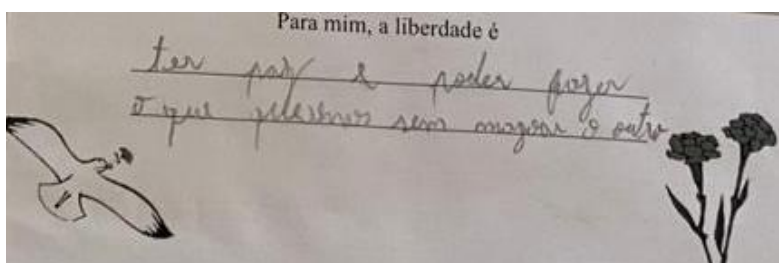 Para mim, a liberdade é
ter paz e poder fazer
o que queremos sem magoar o outro